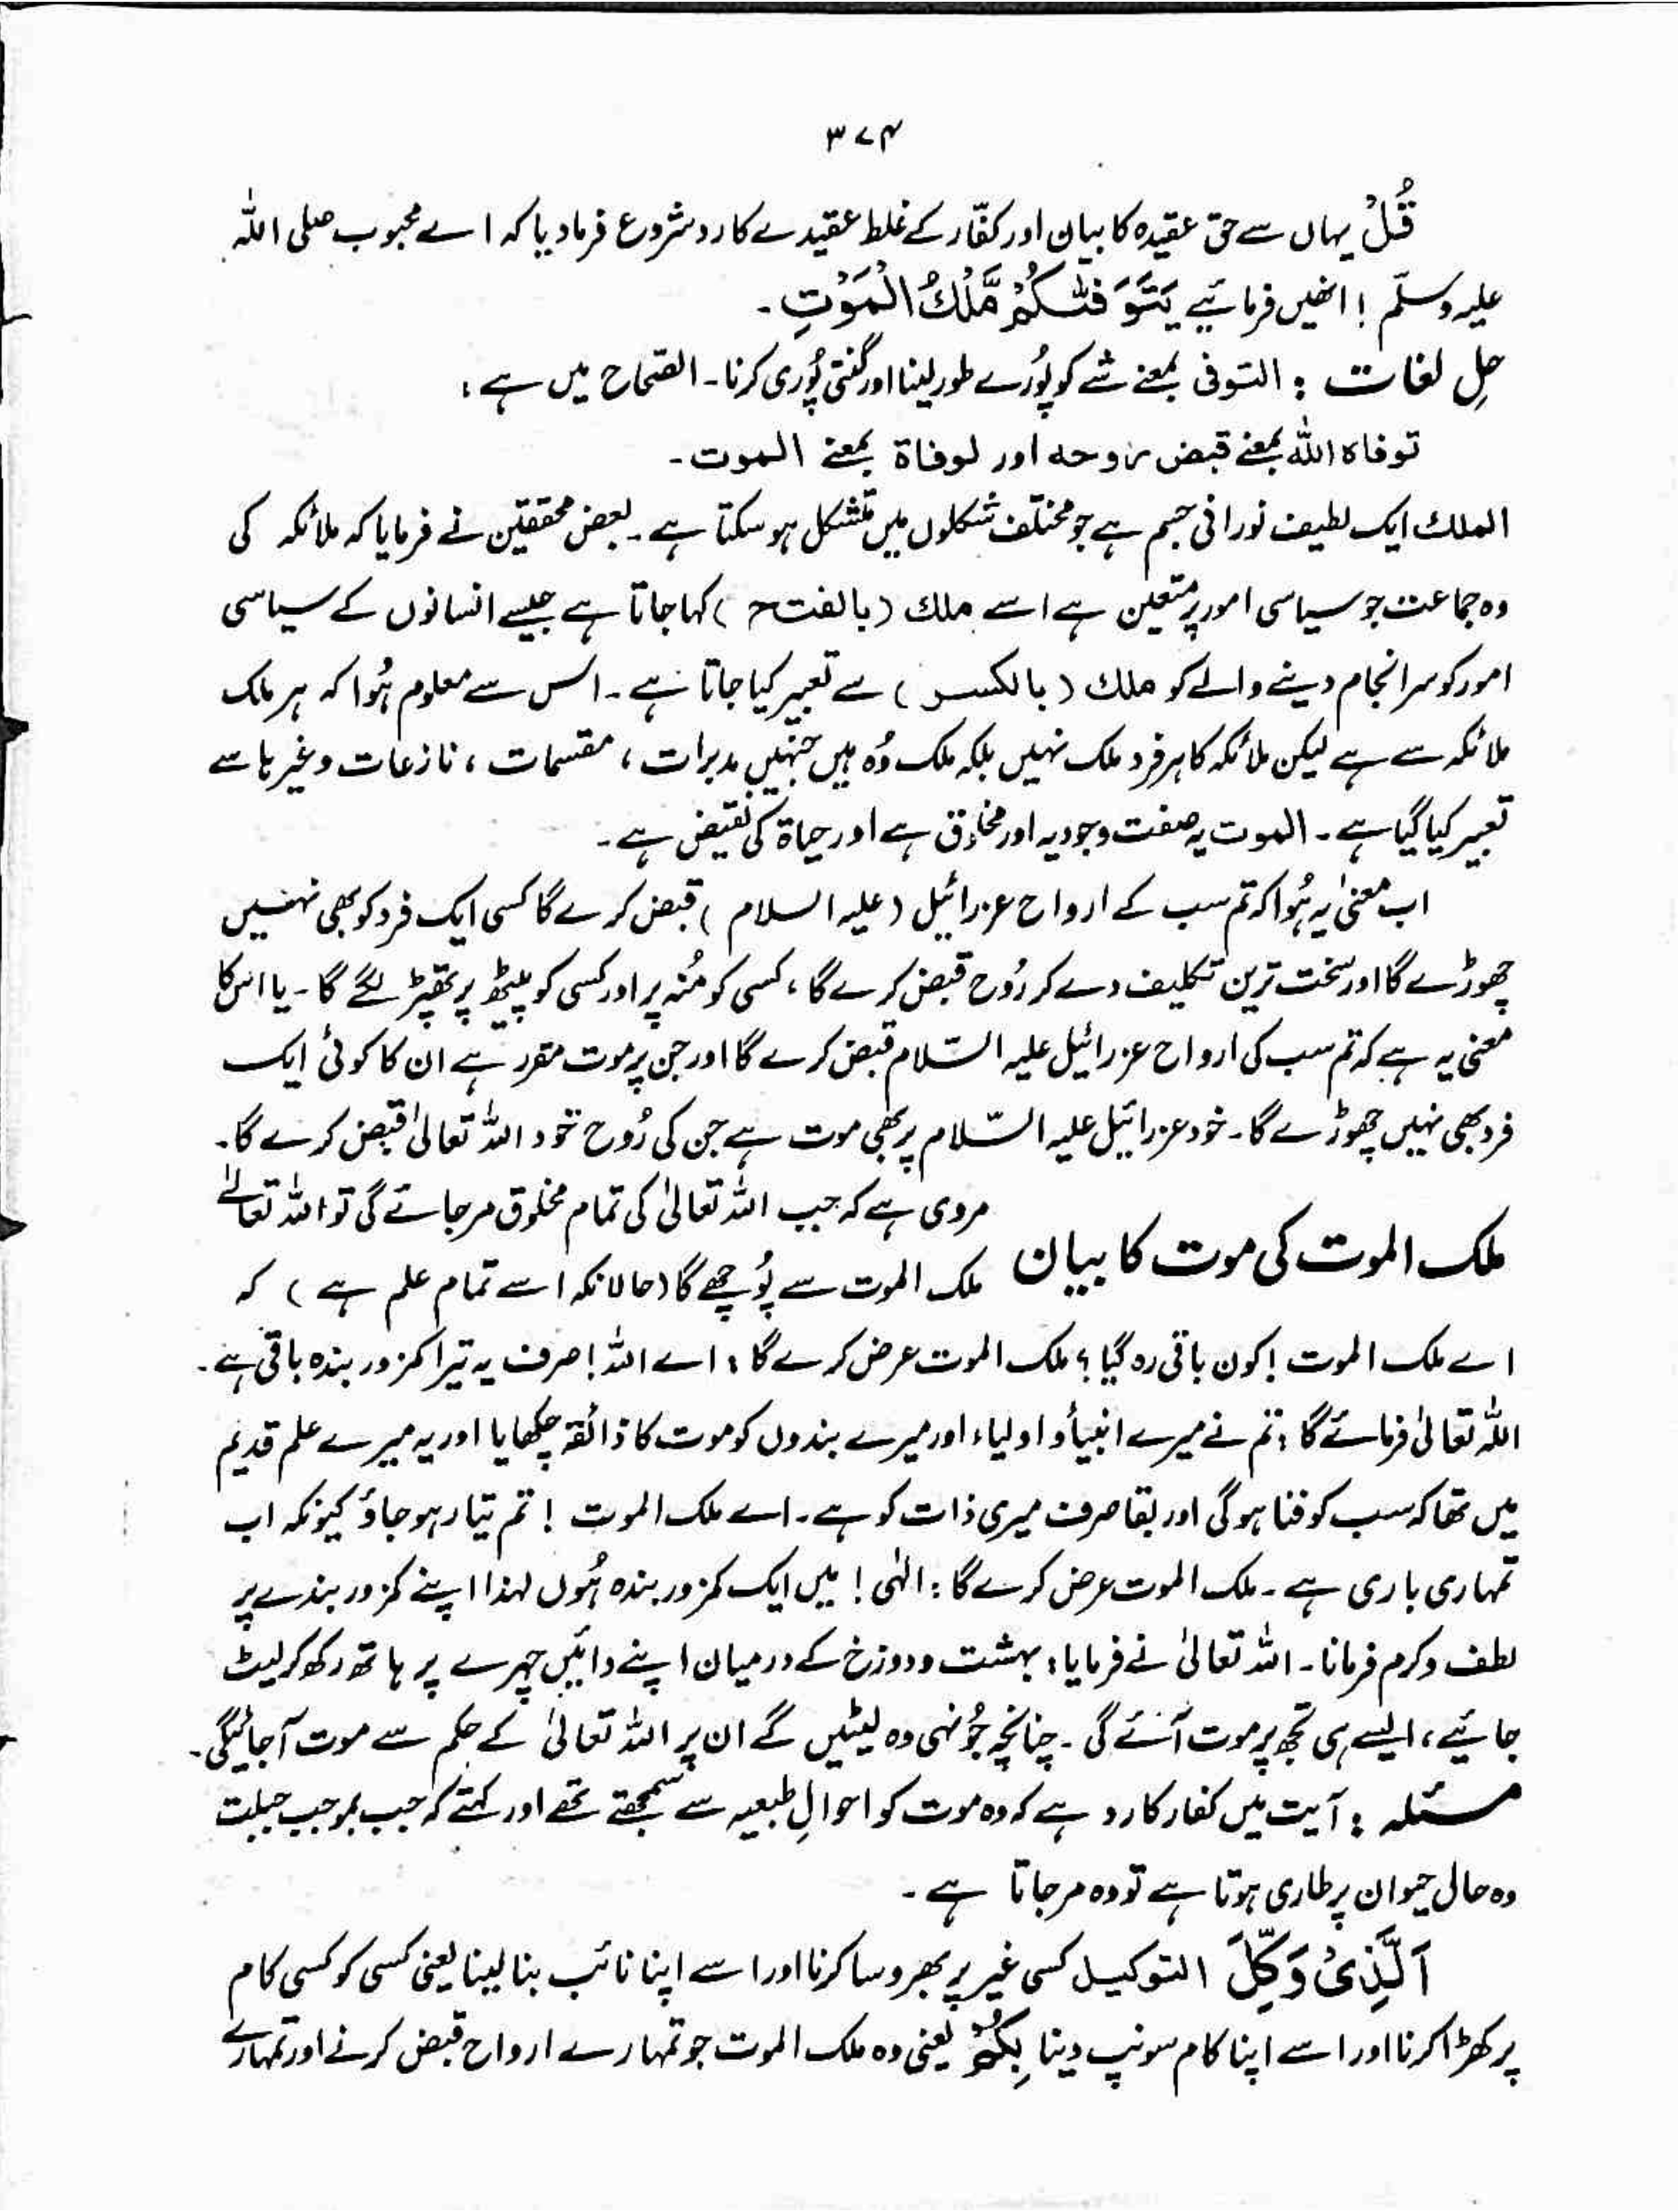 ۳۷۴
قُلْ یہاں سے حق عقیدہ کا بیان اور کفّار کے غلط عقیدے کا رد شروع فرما دیا کہ اے محبوب صلی اللہ
علیہ وسلّم ! انھیں فرمائیے یَتَوَفّٰىكُمْ مَّلَكُ الْمَوْتِ ۔
حلِ لغات : التوفی بمعنے شے کو پُورے طور لینا اور گنتی پُوری کرنا ۔ الصّحاح میں ہے :
توفاہ اللہ بمعنے قبض روحہ اور لوفاة بمعنے الموت ۔
الملك ایک لطیف نورانی جسم ہے جو مختلف شکلوں میں متشکل ہو سکتا ہے ۔ بعض محققین نے فرمایا کہ ملائکہ کی
وہ جماعت جو سیاسی امور پر متعین ہے اسے ملك (بالفتح) کہا جاتا ہے جیسے انسانوں کے سیاسی
امور کو سرانجام دینے والے کو ملك (بالکسر) سے تعبیر کیا جاتا ہے ۔ اس سے معلوم ہُوا کہ ہر ملک
ملائکہ سے ہے لیکن ملائکہ کا ہر فرد ملک نہیں بلکہ ملک وُہ ہیں جنہیں مدبرات ، مقسمات ، نازعات وغیرہا سے
تعبیر کیا گیا ہے ۔ الموت یہ صفت وجودیہ اور مخلوق ہے اور حیاة کی نقیض ہے ۔
اب معنیٰ یہ ہُوا کہ تم سب کے ارواح عزرائیل (علیہ السلام) قبض کرے گا کسی ایک فرد کو بھی نہیں
چھوڑے گا اور سخت ترین تکلیف دے کر رُوح قبض کرے گا ، کسی کو مُنہ پر اور کسی کو پیٹھ پر تھپڑ لگے گا ۔ یا اس کا
معنی یہ ہے کہ تم سب کی ارواح عزرائیل علیہ السّلام قبض کرے گا اور جن پر موت مقرر ہے ان کا کوئی ایک
فرد بھی نہیں چھوڑے گا ۔ خود عزرائیل علیہ السّلام پر بھی موت ہے جن کی رُوح خود اللہ تعالیٰ قبض کرے گا ۔
ملک الموت کی موت کا بیان
مروی ہے کہ جب اللہ تعالیٰ کی تمام مخلوق مر جائے گی تو اللہ تعالےٰ
ملک الموت سے پُوچھے گا (حالانکہ اسے تمام علم ہے) کہ
اے ملک الموت ! کون باقی رہ گیا ؟ ملک الموت عرض کرے گا : اے اللہ ! صرف یہ تیرا کمزور بندہ باقی ہے ۔
اللہ تعالیٰ فرمائے گا : تم نے میرے انبیأ و اولیاء اور میرے بندوں کو موت کا ذائقہ چکھایا اور یہ میرے علم قدیم
میں تھا کہ سب کو فنا ہوگی اور بقا صرف میری ذات کو ہے ۔ اے ملک الموت ! تم تیار ہو جاؤ کیونکہ اب
تمہاری باری ہے ۔ ملک الموت عرض کرے گا : الٰہی ! میں ایک کمزور بندہ ہُوں لہذا اپنے کمزور بندے پر
لطف و کرم فرمانا ۔ اللہ تعالیٰ نے فرمایا : بہشت و دوزخ کے درمیان اپنے دائیں چہرے پر ہاتھ رکھ کر لیٹ
جائیے ، ایسے ہی تجھ پر موت آئے گی ۔ چنانچہ جُونہی وہ لیٹیں گے ان پر اللہ تعالیٰ کے حکم سے موت آجائیگی ۔
مسئلہ : آیت میں کفار کا رد ہے کہ وہ موت کو احوالِ طبعیہ سے سمجھتے تھے اور کہتے کہ جب بموجب جبلت
وہ حال حیوان پر طاری ہوتا ہے تو وہ مر جاتا ہے ۔
اَلَّذِیْ وَكِّلَ التوکیل کسی غیر پر بھروسا کرنا اور اسے اپنا نائب بنا لینا یعنی کسی کو کسی کام
پر کھڑا کرنا اور اسے اپنا کام سونپ دینا بِكُمْ یعنی وہ ملک الموت جو تمہارے ارواح قبض کرنے اور تمہارے